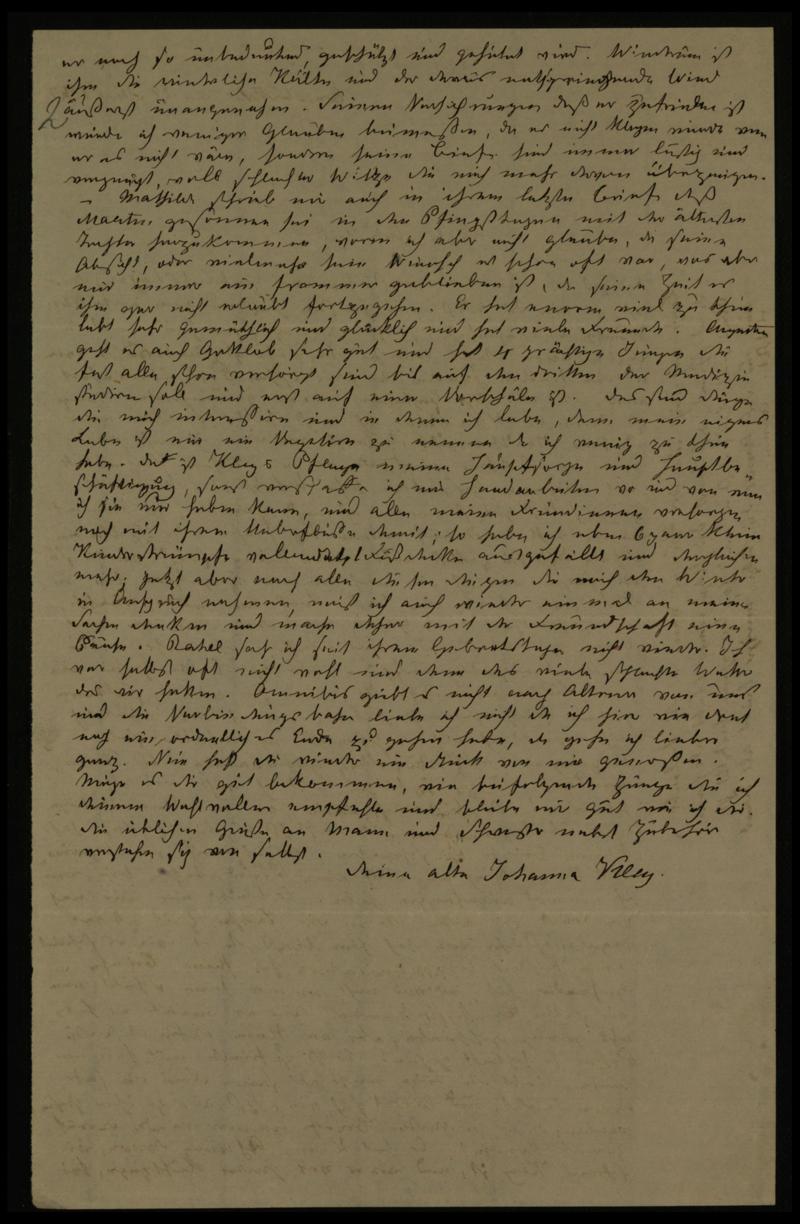 er noch so unbedeutend, geschützt und gehütet wird. Wiederum ist
ihm die winterliche Kälte und der daraus entspringende Wind
äußerst unangenehm. Seinen Versicherungen daß er zufrieden ist
würde ich weniger Glauben beimessen, da er nicht klagen würde wenn
er es nicht wäre, sondern seine Briefe sind immer lustig und
vergnügt, voll schlechter Witze die mich mehr davon überzeugen.
– Mathilde schrieb mir auch in ihrem letzten Briefe daß
Martin gesonnen sei in den Pfingsttagen mit der ältesten
Tochter herzukommen, woran ich aber nicht glaube, da seine
Absicht, oder vielmehr sein Wunsch es schon oft war, was aber
nur immer ein frommer geblieben ist, da seine Zeit es
ihm gar nicht erlaubt fortzugehen. Er hat enorm viel zu thun
lebt sehr gemüthlich und glücklich und hat viele Freunde.
geht es auch Gottlob sehr gut und hat prächtige Jungen die
fast alle schon versorgt sind bis auf den dritten der Medizin
studiren soll und erst auf einer Vorschule ist. Das sind Dinge
die mich interessiren und in denen ich lebe, denn mein eignes
Leben ist nur ein Vegetiren zu nennen da ich wenig zu thun
habe. Das ist Kley's Pflege meine Hauptsorge und Hauptbe-
schäftigung, sonst verschaffe ich mir Handarbeiten wo und von wem
ich sie nur haben kann, und alle meine Freundinnen versorgen
mich mit ihrem Ueberfluße damit; so habe ich eben 6 paar kleine
Kinderstrümpfe vollendet, 1 Fußdecke ausgefüllt und dergleichen
mehr; jetzt aber nach allen diesen Dingen die mich den Winter
in Anspruch nahmen, muß ich auch wieder einmal an meine
Sachen denken und mache daher mit der Freundschaft eine
Pause. Rahel sah ich seit ihrem Geburtstage nicht wieder. Ich
war selbst oft nicht wohl und dann das viele schlechte Wetter
das wir hatten. Omnibus giebt es nicht nach Altona von uns
und die Verbindungsbahn liebe ich nicht da ich hier wie dort
noch ein ordentliches Ende zu gehen habe, da gehe ich lieber
ganz. Nun hast du wieder ein Stück von mir genossen.
Möge es dir gut bekommen, wie beifolgende Zunge die ich
deinem Wohlwollen empfehle und bleibe mir gut wie ich dir.
Die üblichen Grüße an Mann und Schwester nebst Zubehör
verstehen sich von selbst.
Deine alte Johanna Kley.